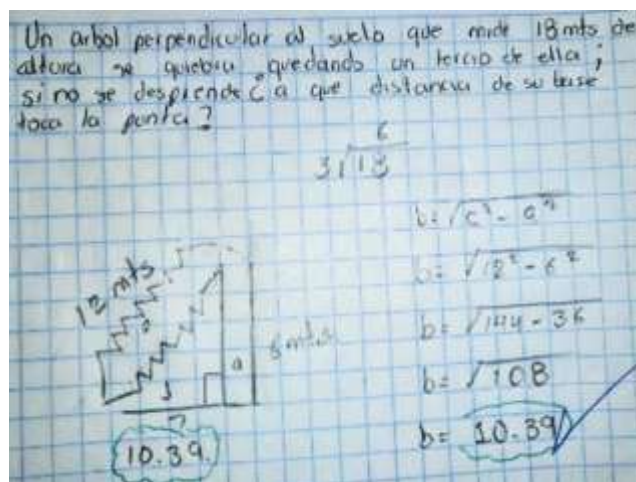 Un arbol perpendicular al suelo que mide 18 mts de
altura se quiebra quedando un tercio de ella ;
si no se desprende ¿ a que distancia de su base
toca la punta ?
6
3√18
b=√c² - a²
b= √12² - 6²
b= √144 - 36
b= √108
b= 10.39
12 mts
6 mts
a
10.39.